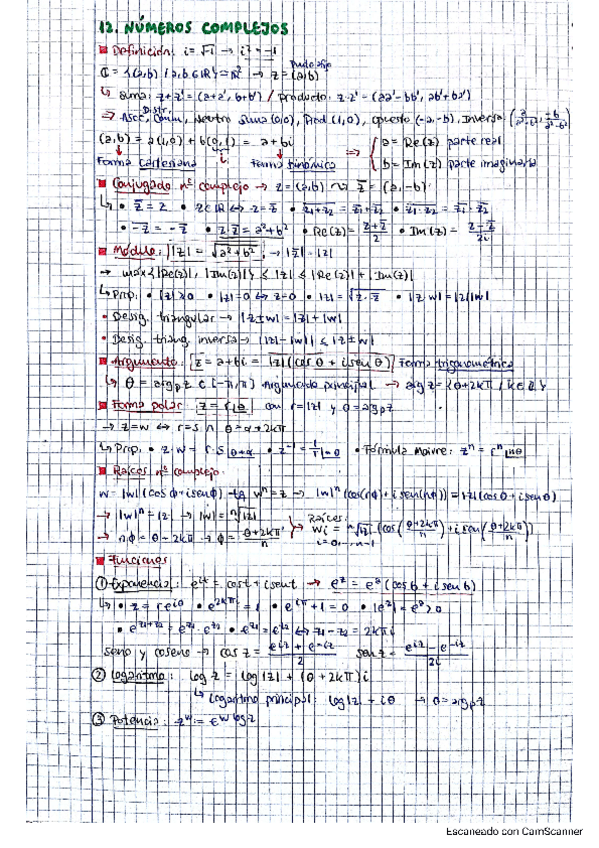 12. NÚMEROS COMPLEJOS
Definición: i = √-1 → i² = -1
ℂ = {(a,b) / a,b ∈ ℝ} = ℝ² → z = (a,b)
↳ suma: z+z' = (a+a', b+b') / producto: z·z' = (aa'-bb', ab'+ba')
⇒ Asoc, Conm, Distr, neutro suma (0,0), Prod (1,0), opuesto (-a,-b), Inversa
(a,b) = a(1,0) + b(0,1) = a+bi ⇒ { a = Re(z) parte real
Forma cartesiana i Forma binómica b = Im(z) parte imaginaria
Conjugado nº complejo → z = (a,b) z̄ = (a,-b)
↳ • z̄ = z • z ∈ ℝ ⇔ z = z̄ • z1+z2 = z̄1+z̄2 • z1·z2 = z̄1·z̄2
• -z = -z̄ • z·z̄ = a²+b² • Re(z) = (z+z̄)/2 • Im(z) = (z-z̄)/2i
Módulo: |z| = √a²+b² ; → |z̄| = |z|
→ max{|Re(z)|, |Im(z)|} ≤ |z| ≤ |Re(z)|+|Im(z)|
↳ Prop: • |z| ≥ 0 • |z|=0 ⇔ z=0 • |z| = √z·z̄ • |z·w| = |z||w|
• Desig. triangular → |z±w| = |z|+|w|
• Desig. triang. inversa → ||z|-|w|| ≤ |z±w|
Argumento: z = a+bi = |z|(cos θ + i sen θ) Forma trigonométrica
↳ θ = arg_p z ∈ (-π,π) Argumento principal → arg z = {θ+2kπ / k∈ℤ}
Forma polar: z = r|θ con r=|z| y θ=arg_p z
→ z=w ⇔ r=s ∧ θ=α+2kπ
↳ Prop. • z·w = r·s|θ+α • z⁻¹ = 1/r|-θ • Fórmula Moivre: zⁿ = rⁿ|nθ
Raíces nº complejo:
w = |w|(cos φ + i sen φ) tq wⁿ = z → |w|ⁿ(cos(nφ) + i sen(nφ)) = |z|(cos θ + i sen θ)
→ |w|ⁿ = |z| → |w| = ⁿ√|z| } Raíces:
→ nφ = θ-2kπ → φ = (θ+2kπ)/n wi = ⁿ√|z| (cos((θ+2kπ)/n) + i sen((θ+2kπ)/n))
i=0,...,n-1
Funciones
① Exponencial: e^it = cos t + i sen t → e^z = e^a (cos b + i sen b)
↳ • z = r e^iθ • e^2kπi = 1 • e^iπ + 1 = 0 • |e^z| = e^a > 0
• e^z1+z2 = e^z1 · e^z2 • e^z1 = e^z2 ⇔ z1-z2 = 2kπi
seno y coseno → cos z = (e^iz + e^-iz)/2 sen z = (e^iz - e^-iz)/2i
② Logaritmo: log z = log|z| + (θ+2kπ)i
↳ Logaritmo principal: log|z| + iθ → θ = arg_p z
③ Potencia: z^w := e^w log z
Escaneado con CamScanner